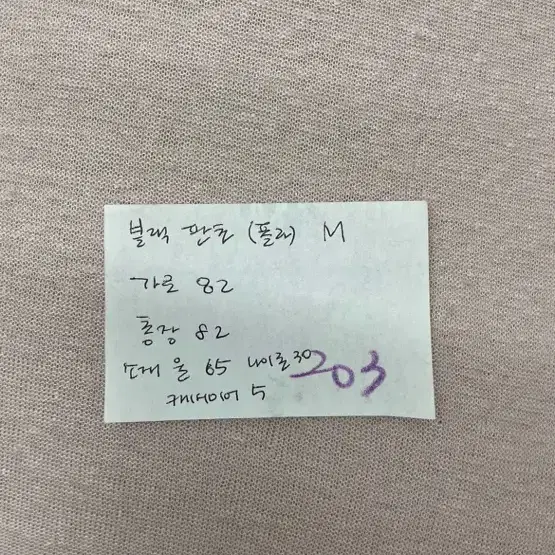 블랙 판쵸 (폴라) M
가로 82
총장 82
소재 울 65 나이론 30
캐시미어 5
203